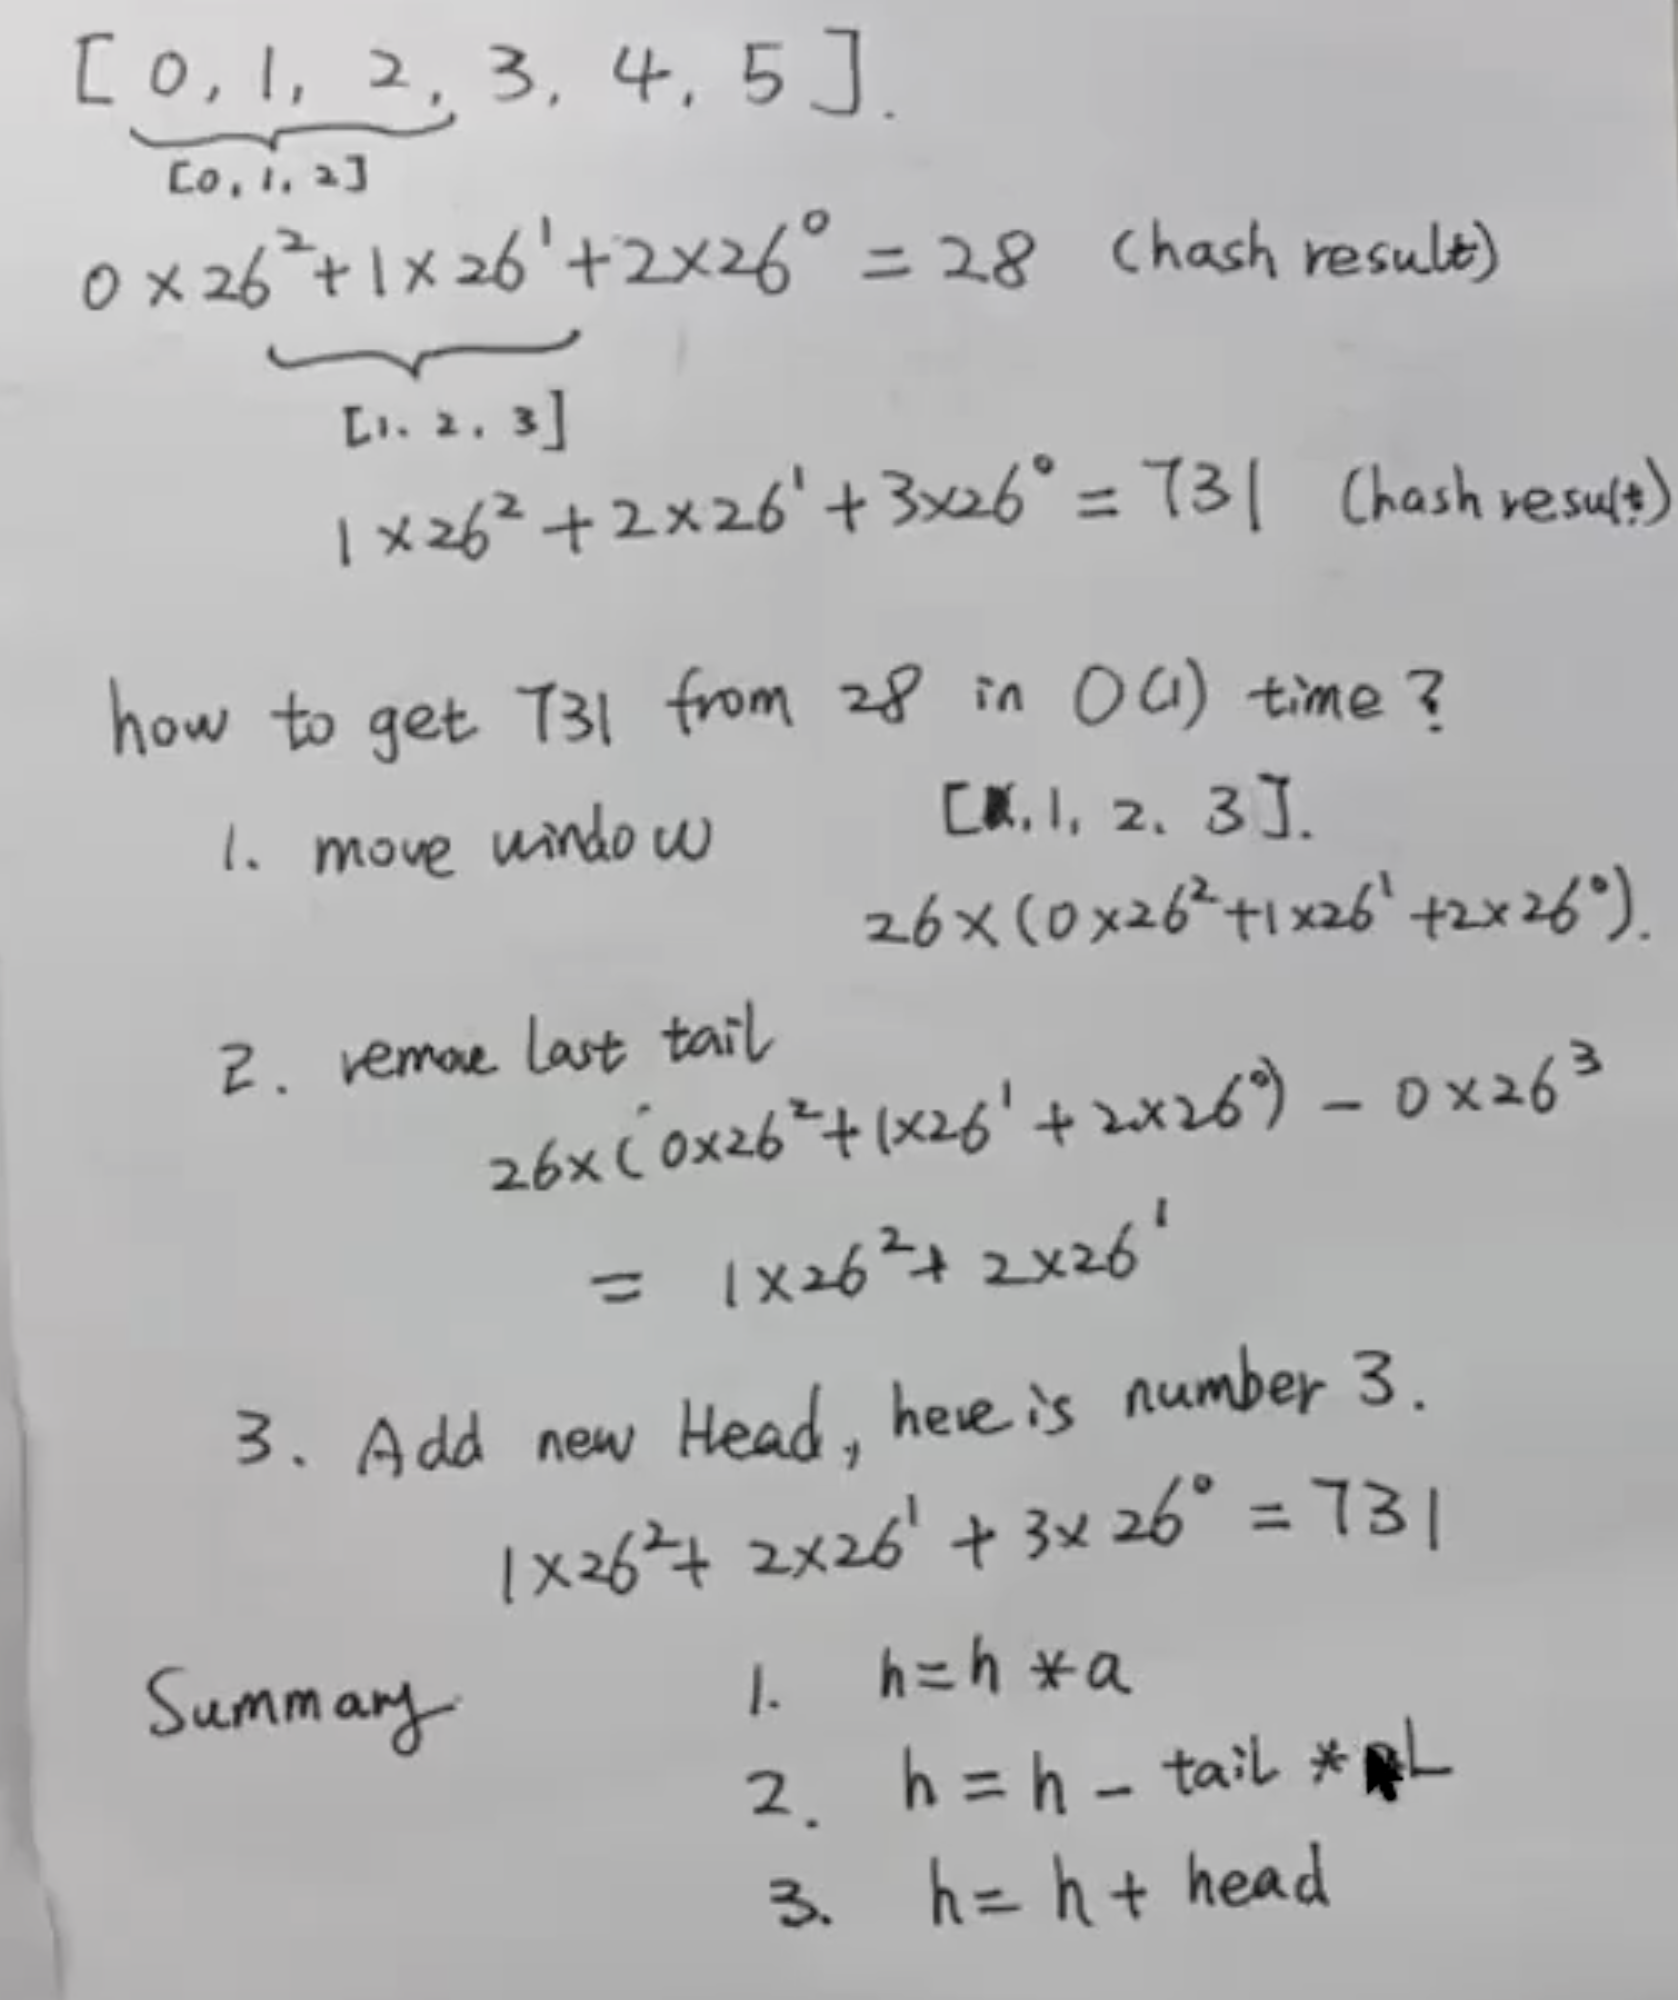 [0, 1, 2, 3, 4, 5].
[0, 1, 2]
0×26²+1×26¹+2×26⁰ = 28 (hash result)
[1. 2. 3]
1×26²+2×26¹+3×26⁰ = 731 (hash result)
how to get 731 from 28 in O(1) time?
1. move window [ , 1, 2. 3].
26×(0×26²+1×26¹+2×26⁰).
2. remove last tail
26×(0×26²+1×26¹+2×26⁰) - 0×26³
= 1×26²+ 2×26¹
3. Add new Head, here is number 3.
1×26²+ 2×26¹ + 3×26⁰ = 731
Summary 1. h=h *a
2. h = h - tail * L
3. h = h + head